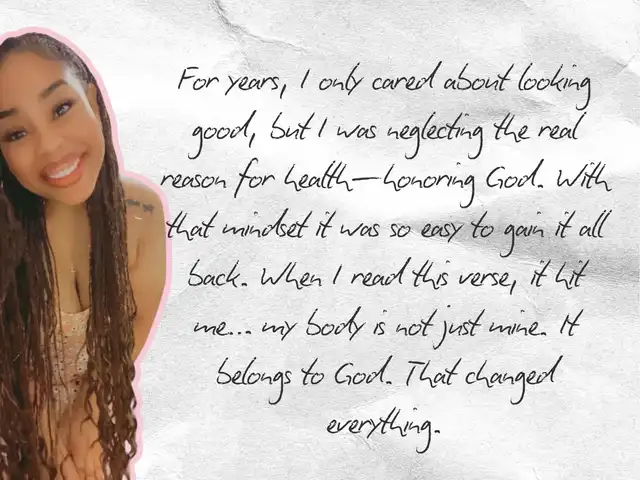 For years, I only cared about looking
good, but I was neglecting the real
reason for health—honoring God. With
that mindset it was so easy to gain it all
back. When I read this verse, it hit
me... my body is not just mine. It
belongs to God. That changed
everything.